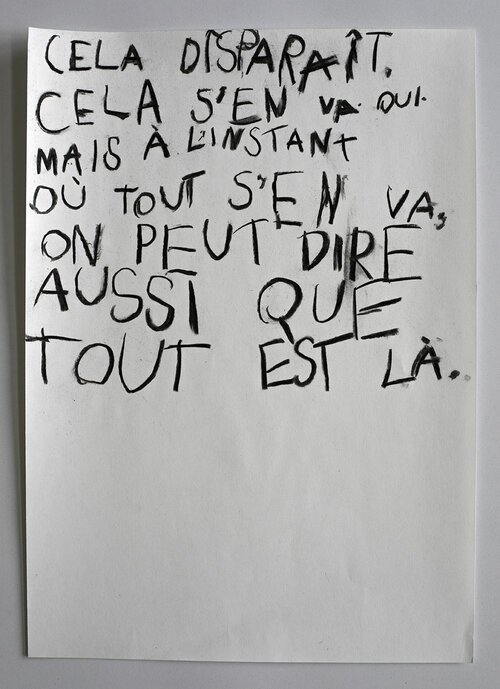 CELA DISPARAÎT.
CELA S'EN VA. OUI.
MAIS À L'INSTANT
OÙ TOUT S'EN VA,
ON PEUT DIRE
AUSSI QUE
TOUT EST LÀ.